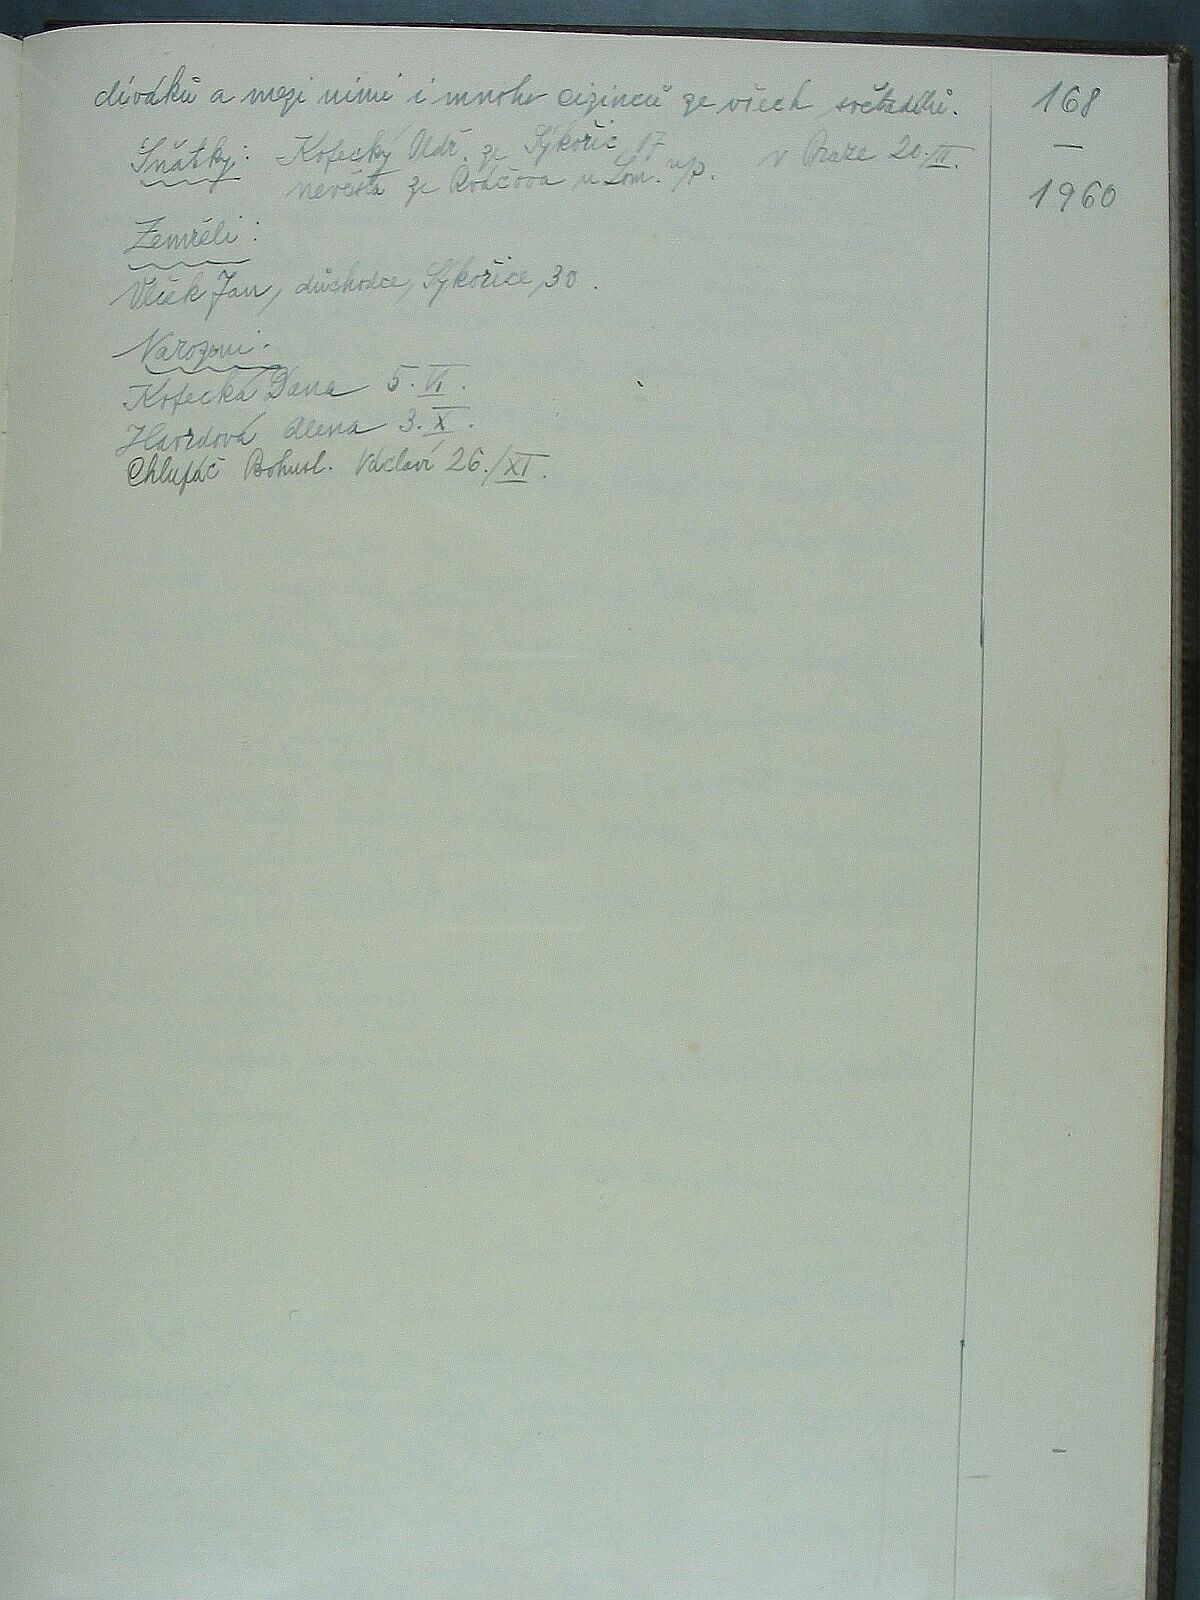 diváků a mezi nimi i mnoho cizinců ze všech světadílů.
168
—
1960
Sňátky: Kofecký Oldř. ze Sýkořic 17 v Praze 20.II.
nevěsta ze Rváčova u Lom. n/p.
Zemřeli:
Vlček Jan, důchodce, Sýkořice 30.
Narozeni:
Kofecká Dana 5.VI.
Havrdová Alena 3.X.
Chlupáč Bohusl. Václaví 26./XI.